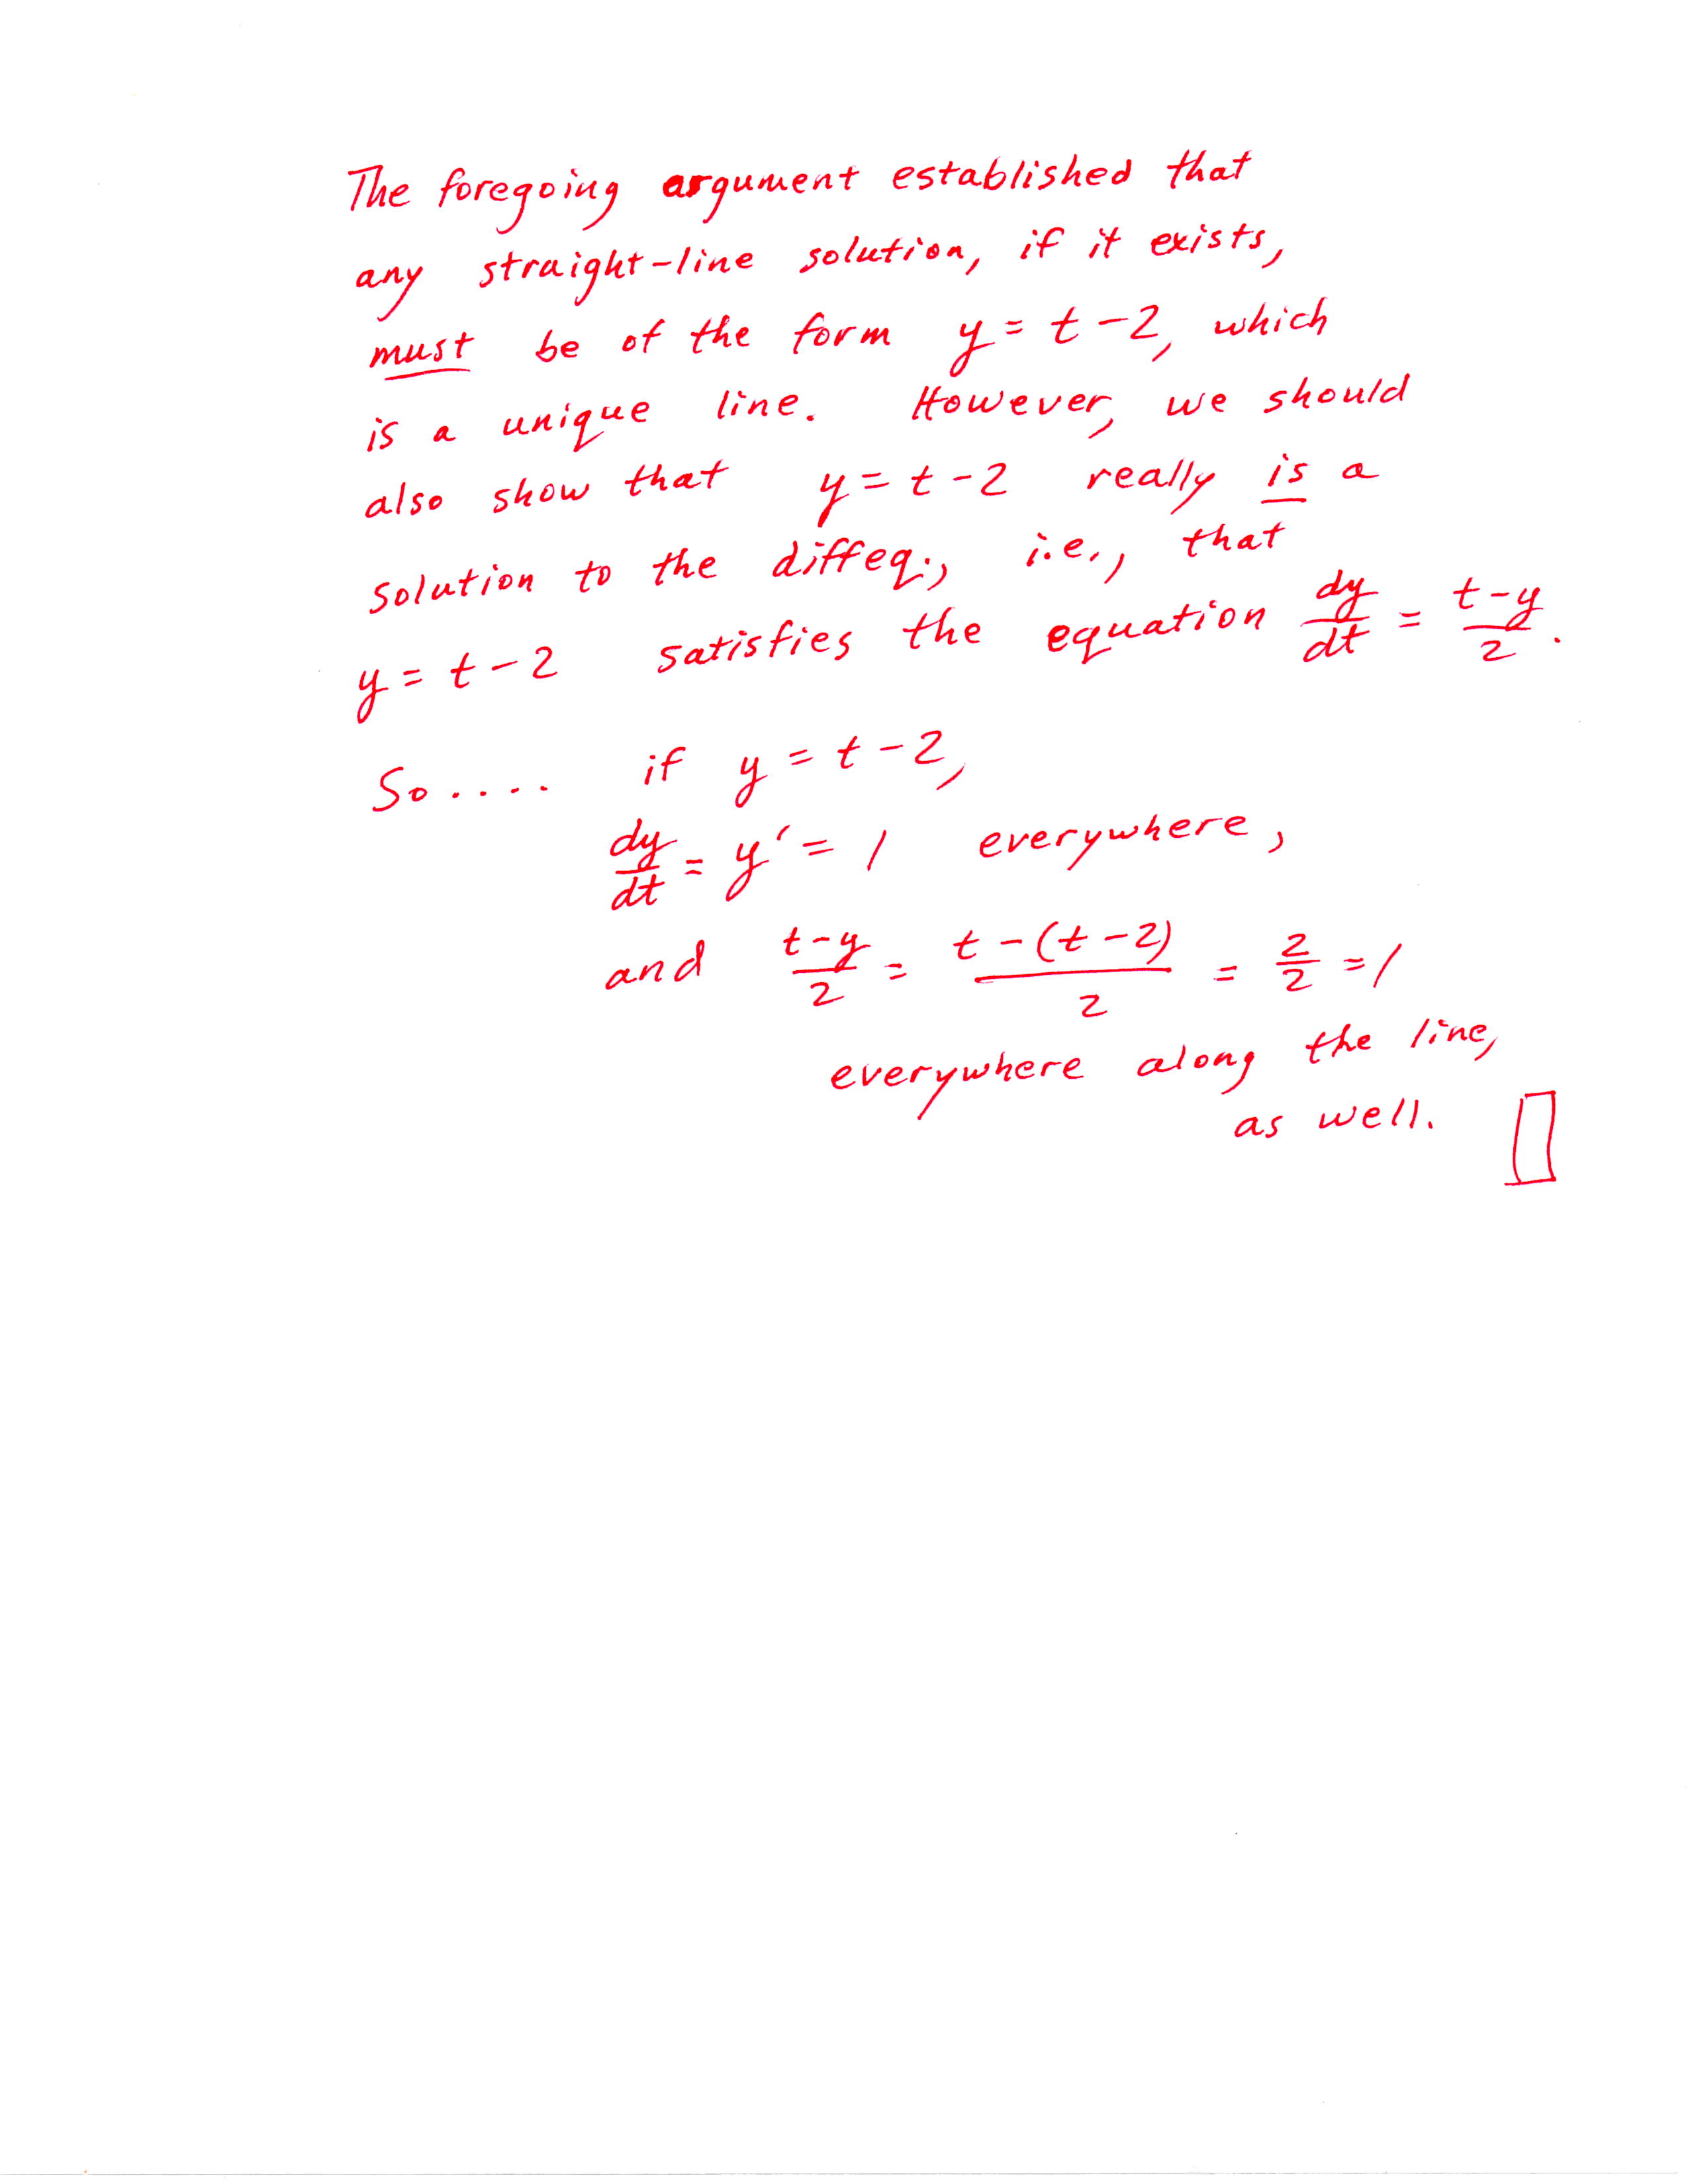 The foregoing argument established that
any straight-line solution, if it exists,
must be of the form y = t - 2, which
is a unique line. However, we should
also show that y = t - 2 really is a
solution to the diffeq., i.e., that
y = t - 2 satisfies the equation dy/dt = (t-y)/2.
So.... if y = t - 2,
dy/dt = y' = 1 everywhere,
and (t-y)/2 = (t-(t-2))/2 = 2/2 = 1
everywhere along the line,
as well.